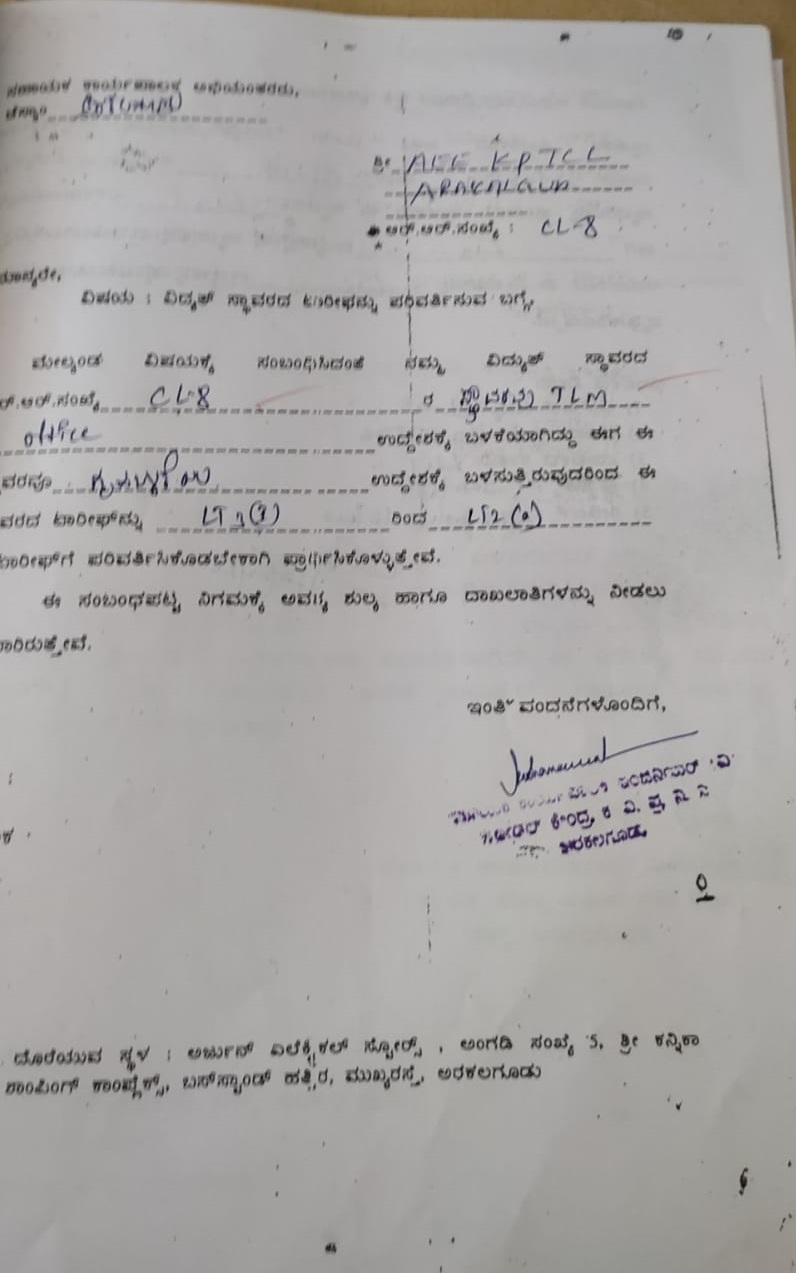 ಸಹಾಯಕ ಕಾರ್ಯಪಾಲಕ ಅಭಿಯಂತರರು,
ಶ್ರೀ AEE KPTCL
ARAKALGUD
ಆರ್.ಆರ್.ಸಂಖ್ಯೆ : CL-8
ಮಾನ್ಯರೇ,
ವಿಷಯ : ವಿದ್ಯುತ್ ಸ್ಥಾವರದ ಟಾರೀಫನ್ನು ಪರಿವರ್ತಿಸುವ ಬಗ್ಗೆ
ಮೇಲ್ಕಂಡ ವಿಷಯಕ್ಕೆ ಸಂಬಂಧಿಸಿದಂತೆ ನಮ್ಮ ವಿದ್ಯುತ್ ಸ್ಥಾವರದ
ಆರ್.ಆರ್.ಸಂಖ್ಯೆ CL-8 ರ ಸ್ಥಾವರವು TLM
office ಉದ್ದೇಶಕ್ಕೆ ಬಳಕೆಯಾಗಿದ್ದು ಈಗ ಈ
ವರವು ಉದ್ದೇಶಕ್ಕೆ ಬಳಸುತ್ತಿರುವುದರಿಂದ ಈ
ವರದ ಟಾರೀಫ್‌ನ್ನು LT 3(I) ರಿಂದ LT2 (a)
ಟಾರೀಫ್‌ಗೆ ಪರಿವರ್ತಿಸಿಕೊಡಬೇಕಾಗಿ ಪ್ರಾರ್ಥಿಸಿಕೊಳ್ಳುತ್ತೇವೆ.
ಈ ಸಂಬಂಧಪಟ್ಟ ನಿಗಮಕ್ಕೆ ಅವಶ್ಯ ಶುಲ್ಕ ಹಾಗೂ ದಾಖಲಾತಿಗಳನ್ನು ನೀಡಲು
ಇಂತಿ ವಂದನೆಗಳೊಂದಿಗೆ,
ಕೇಂದ್ರ ಕ ವಿ. ಪ್ರ ನಿ ನಿ
ಅರಕಲಗೂಡು
ದೊರೆಯುವ ಸ್ಥಳ : ಅರ್ಜುನ್ ಎಲೆಕ್ಟ್ರಿಕಲ್ ಸ್ಟೋರ್ಸ್ , ಅಂಗಡಿ ಸಂಖ್ಯೆ 5, ಶ್ರೀ ಕನ್ನಿಕಾ
ಶಾಪಿಂಗ್ ಕಾಂಪ್ಲೆಕ್ಸ್, ಬಸ್‌ಸ್ಟ್ಯಾಂಡ್ ಹತ್ತಿರ, ಮುಖ್ಯರಸ್ತೆ, ಅರಕಲಗೂಡು